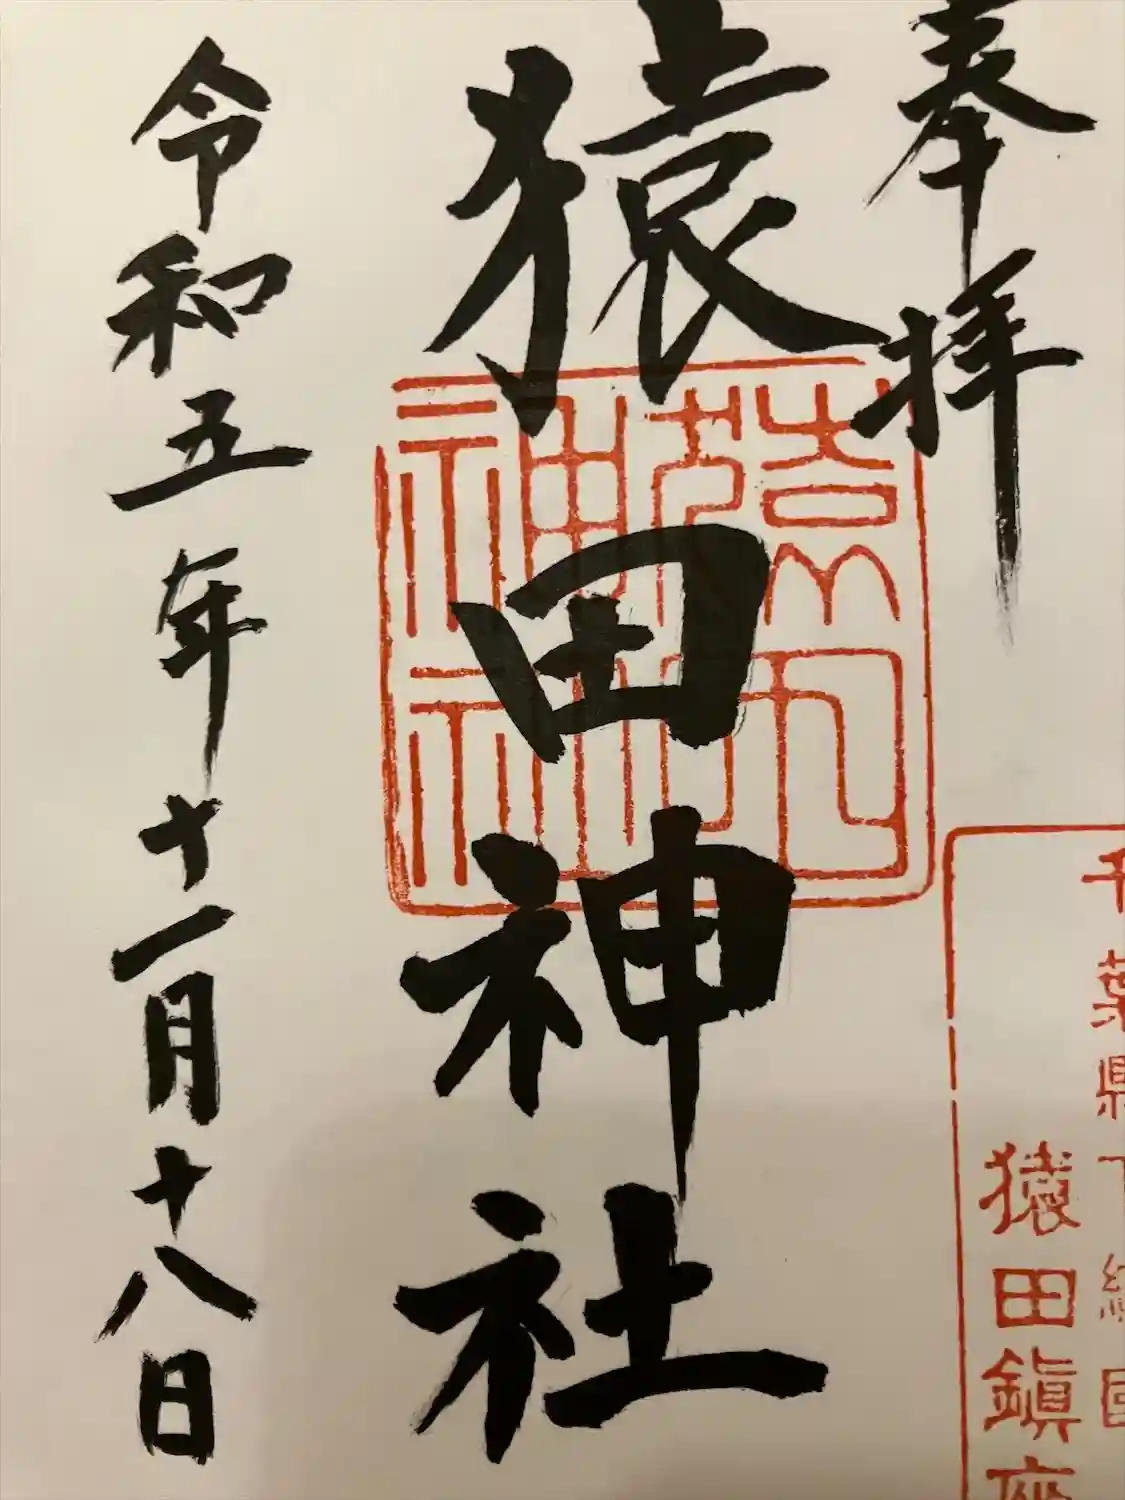 奉拝
千葉県下総國
猿田鎮座
猿田神社
令和五年十一月十八日